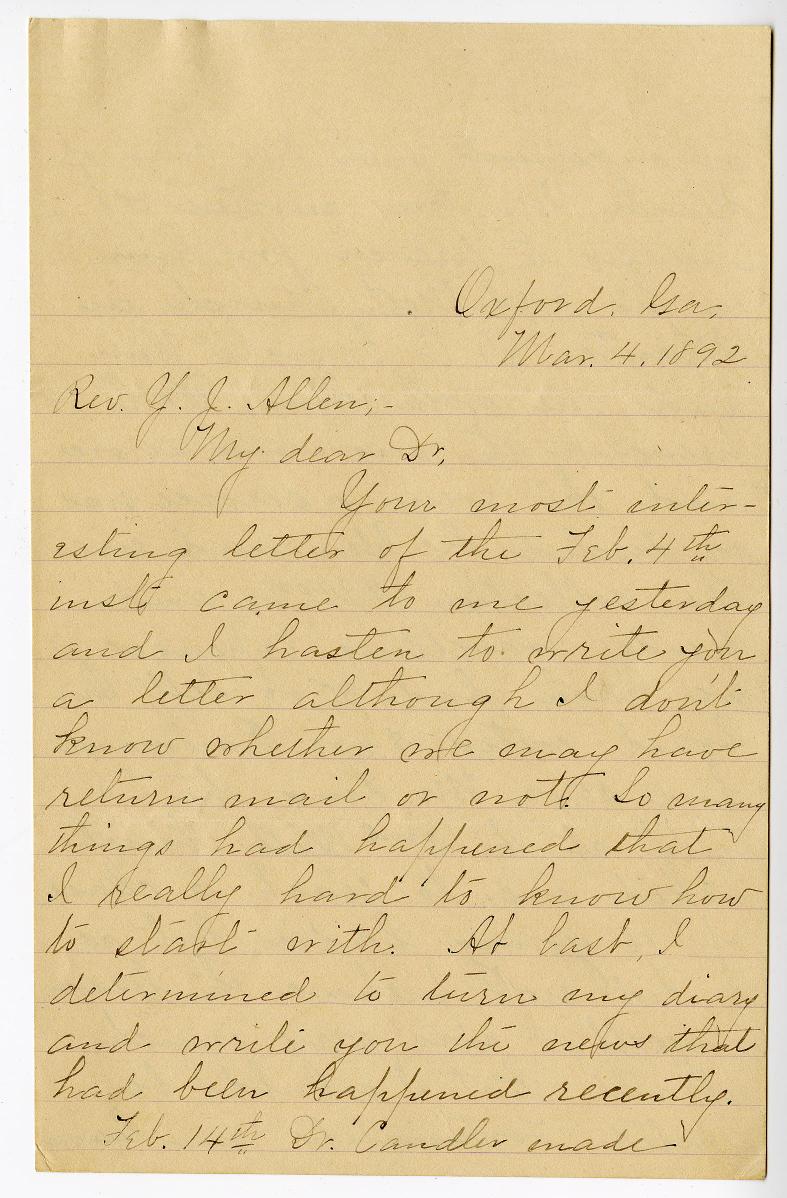 Oxford, Ga.
Mar. 4. 1892
Rev. Y. J. Allen;-
My dear Dr.
Your most inter-
esting letter of the Feb. 4th
inst. came to me yesterday
and I hasten to write you
a letter although I don't
know whether we may have
return mail or not. So many
things had happened that
I really hard to know how
to start with. At last, I
determined to turn my diary
and write you the news that
had been happened recently.
Feb. 14th Dr. Candler made